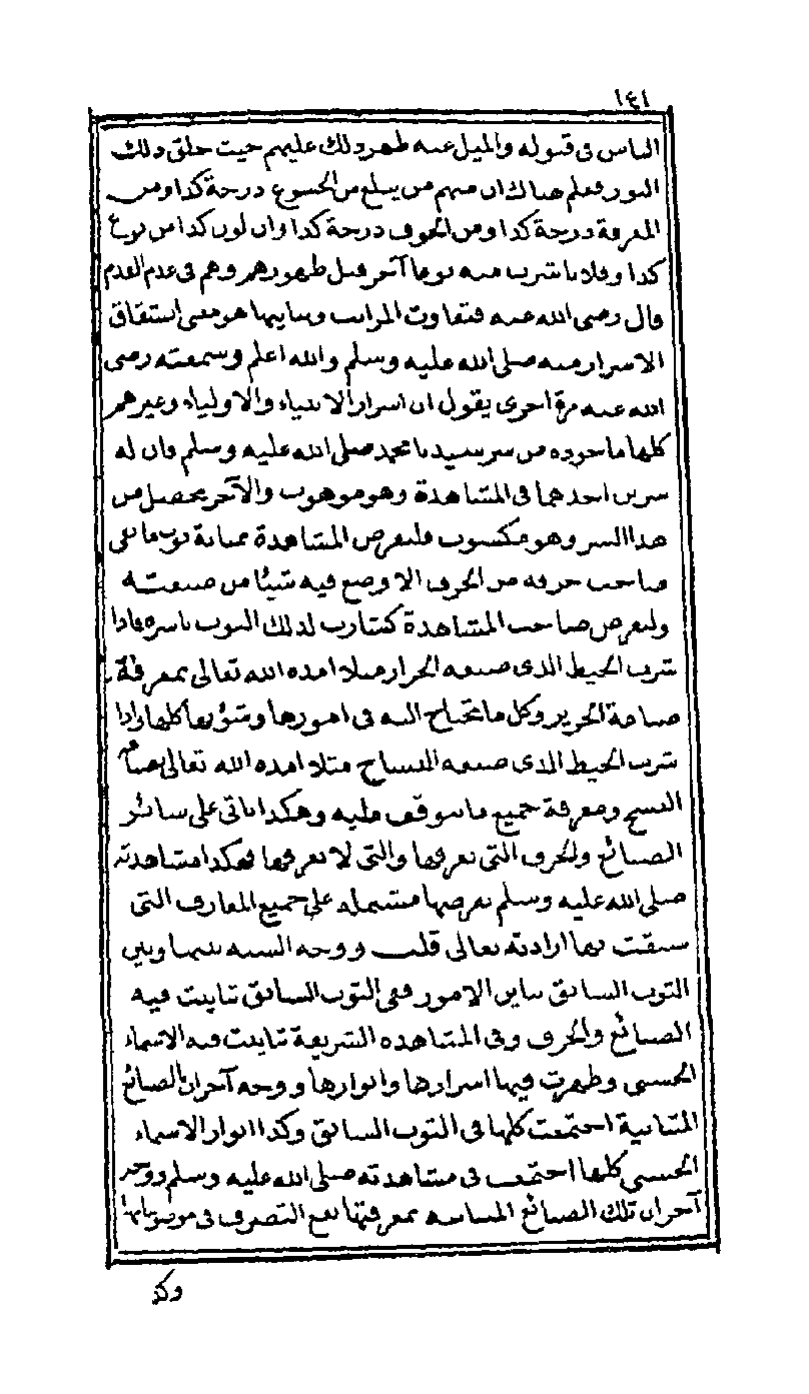 ١٤١
الناس فى قبوله والميل عنه ظهر ذلك عليهم حيث خلق ذلك
النور فعلم هناك ان منهم من يبلغ من الخشوع درجة كذا ومن
المعرفة درجة كذا ومن الخوف درجة كذا وان لون كذا من نوع
كذا وفلانا شرب منه نوعا آخر قبل ظهورهم وهم فى عدم العدم
قال رضى الله عنه فتفاوت المراتب وتباينها هو معنى انشقاق
الاسرار منه صلى الله عليه وسلم والله اعلم وسمعته رضى
الله عنه مرة اخرى يقول ان اسرار الانبياء والاولياء وغيرهم
كلها ماخوذه من سر سيدنا محمد صلى الله عليه وسلم فان له
سرين احدهما فى المشاهدة وهو موهوب والآخر يحصل من
هذا السر وهو مكسوب فلنفرض المشاهدة بمثابة ثوب ما بقى
صاحب حرفة من الحرف الا وضع فيه شيئا من صنعته
ولنفرض صاحب المشاهدة كشارب لذلك الثوب باسره فاذا
شرب الخيط الذى صنعه الحرار مثلا امده الله تعالى بمعرفة
صناعة الحرير وكل ما يحتاج اليه فى امورها وشؤونها كلها واذا
شرب الخيط الذى صنعه النساج مثلا امده الله تعالى بصناعة
النسج ومعرفة جميع ما يتوقف عليه وهكذا ياتى على سائر
الصنائع والحرف التى نعرفها والتى لا نعرفها فهكذا مشاهدته
صلى الله عليه وسلم نفرضها مشتملة على جميع المعارف التى
سبقت بها ارادته تعالى قلت ووجه الشبه بينها وبين
الثوب السابق تباين الامور ففى الثوب السابق تباينت فيه
الصنائع والحرف وفى المشاهده الشريفة تباينت فيه الاسماء
الحسنى وظهرت فيها اسرارها وانوارها ووجه آخر ان الصنائع
المتباينة اجتمعت كلها فى الثوب السابق وكذا انوار الاسماء
الحسنى كلها اجتمعت فى مشاهدته صلى الله عليه وسلم ووجه
آخر ان تلك الصنائع المتباينه بمعرفتها يقع التصرف فى موضوعاتها
وكذ